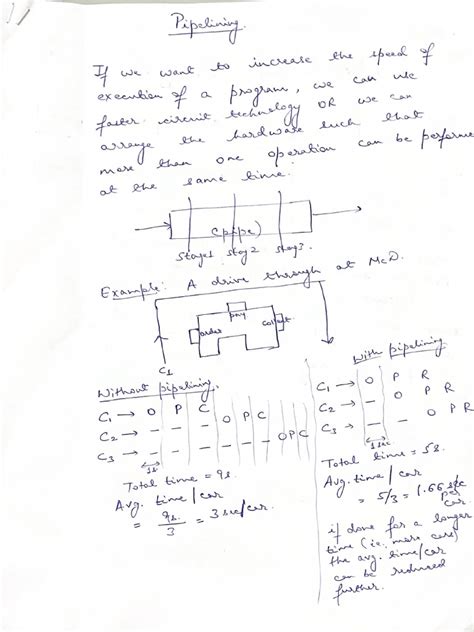 Pipelining.
If we want to increase the speed of
execution of a program, we can use
faster circuit technology OR we can
arrange the hardware such that
more than one operation can be performe
at the same time.
(pipe)
Stage1 Stag2 Stag3.
Example: A drive through at McD.
pay
order collect
C1
Without pipelining.
C1 → O P C
O P C
C2 → - - -
C3 → - - - - - - O P C
1s
Total time = 9s
Avg. time/car
= 9s. / 3 = 3 sec/car.
With pipelining
C1 → O P R
C2 → - O P R
C3 → - - O P R
1sec
Total time = 5s.
Avg. time / car
= 5/3 = 1.66 sec
per car
if done for a longer
time (ie. more cars)
the avg. time/car
can be reduced
further.